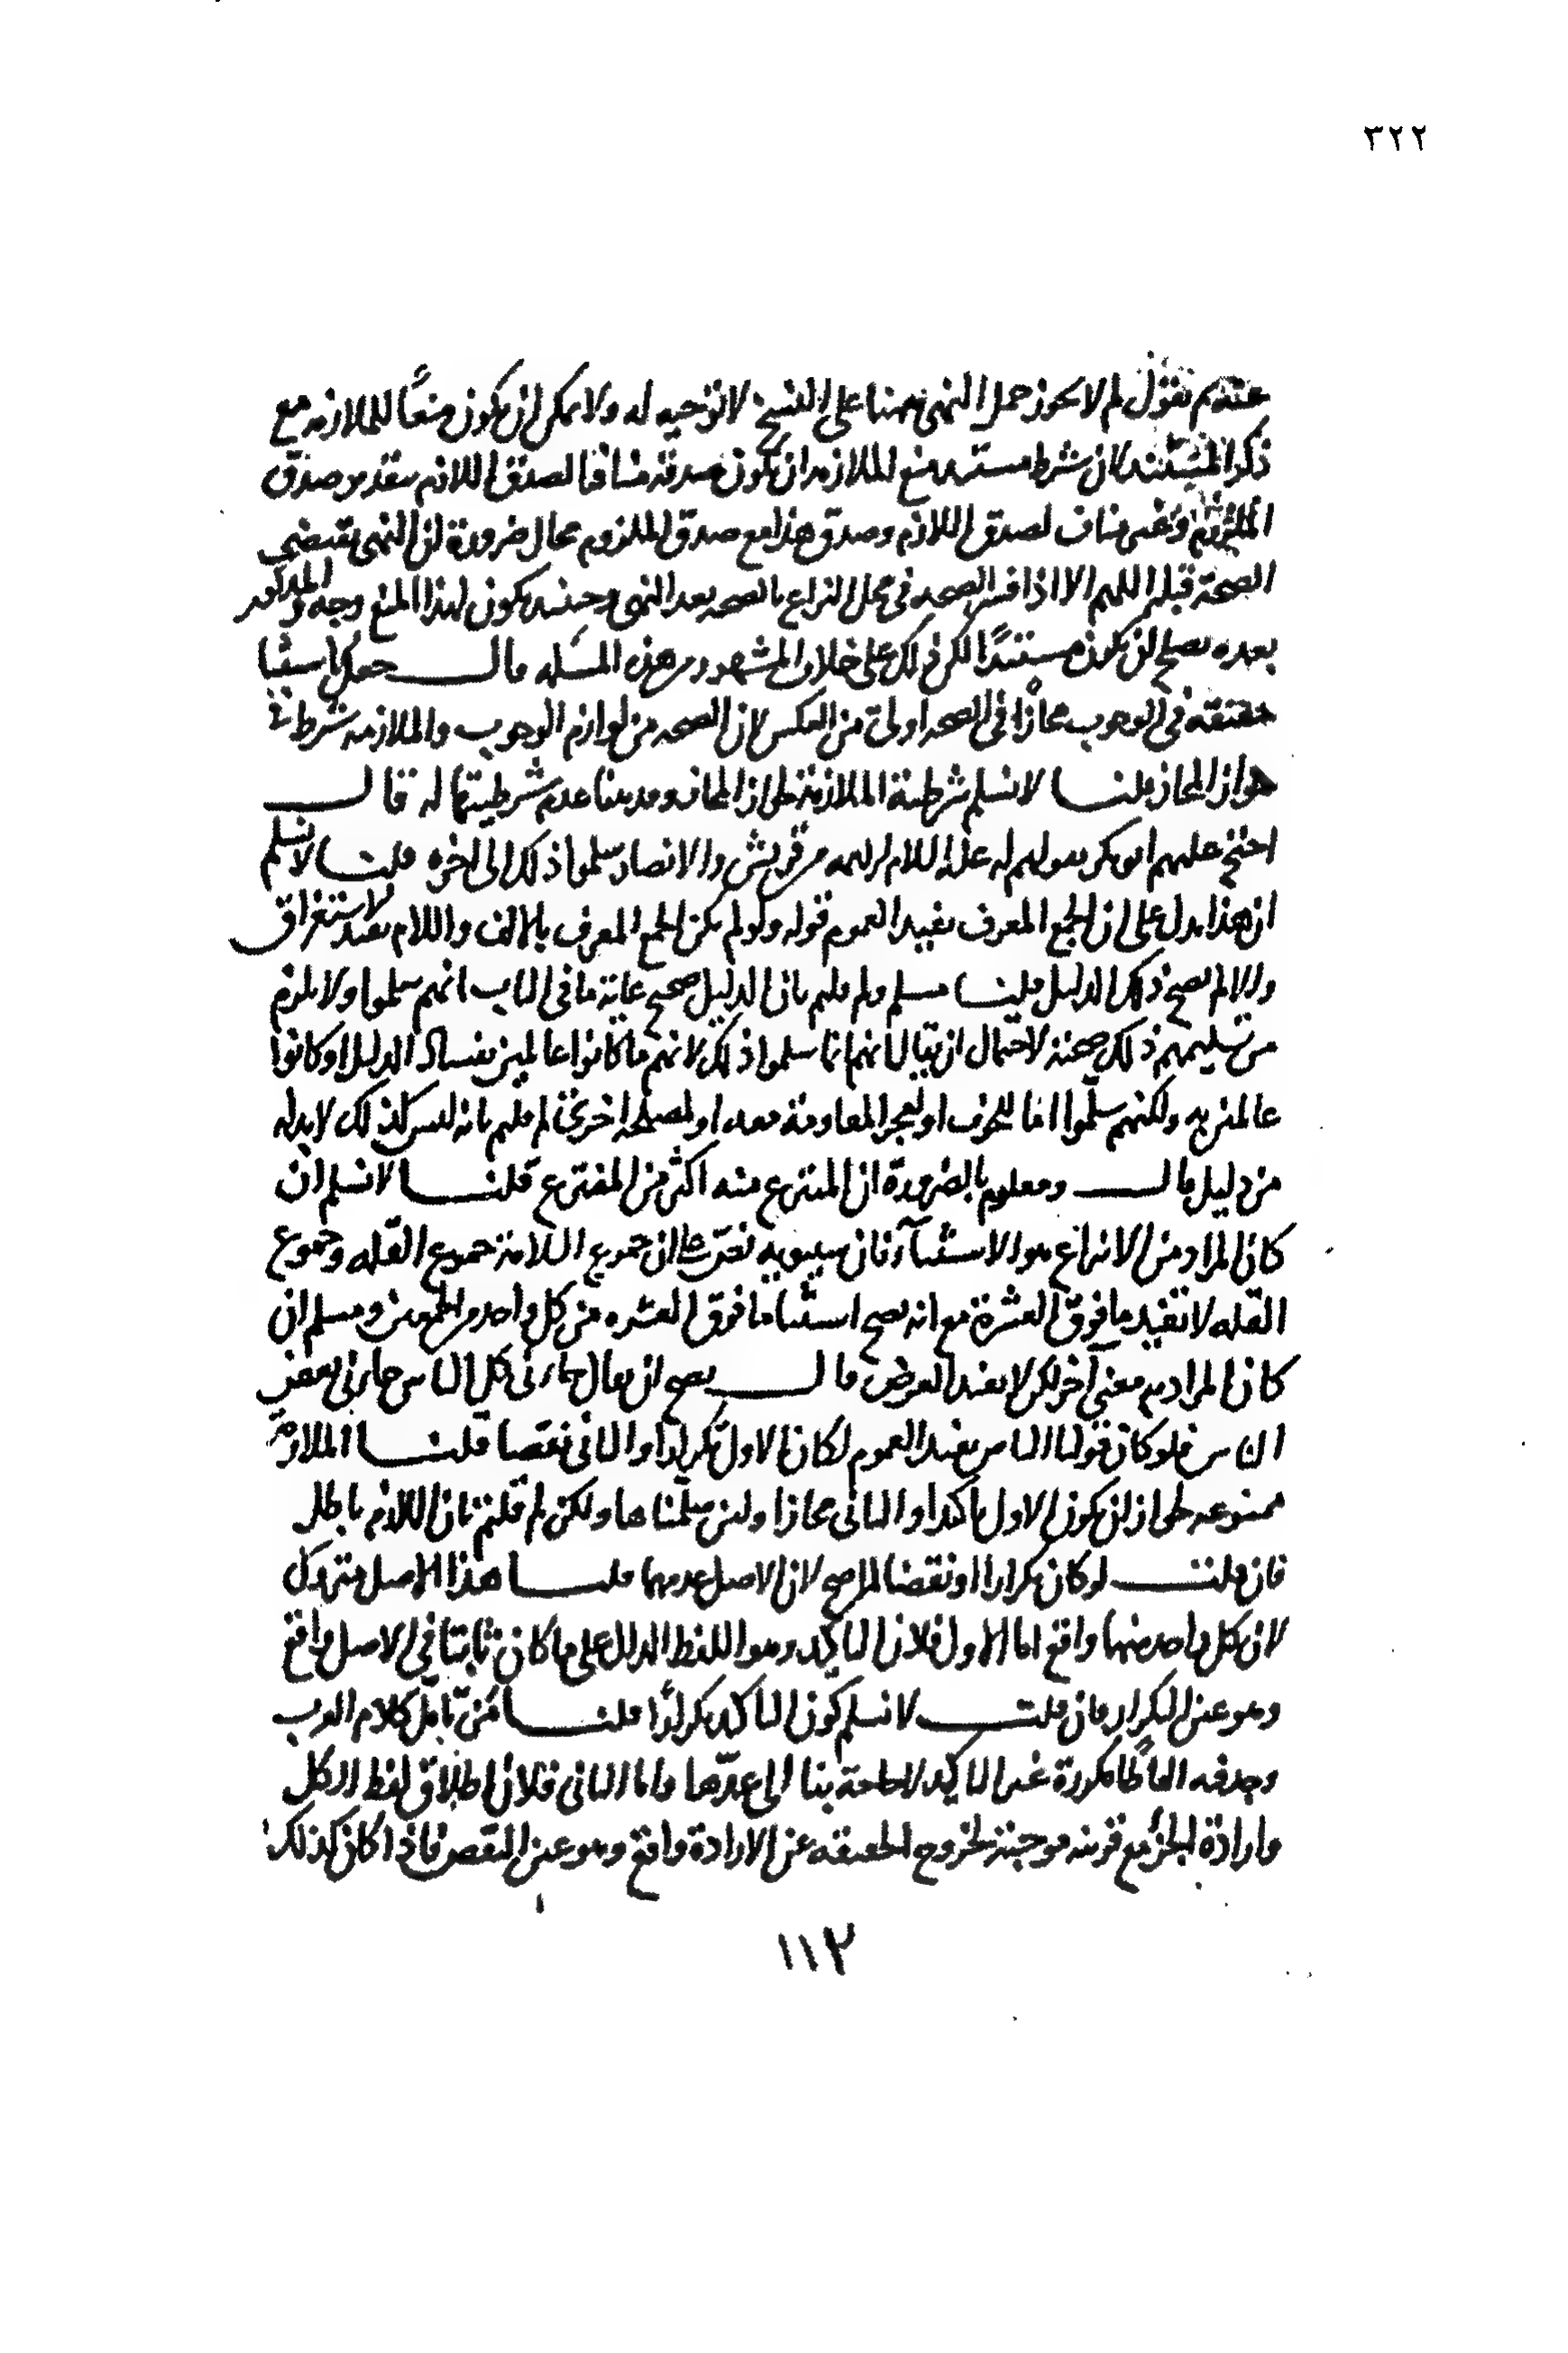 ٣٢٢
عندهم نقول لم لا يجوز حمل النهى ههنا على النسخ لا توجيه له ولا يمكن ان يكون منعًا للملازمه مع
ذكر المستند لان شرط مستند منع الملازمه ان يكون صدقه منافيا لصدق اللازم بتقدير صدق
الملزوم وغير مناف لصدق اللازم وصدق هذا مع صدق الملزوم محال ضرورة ان النهى يقتضى
الصحة قبله اللهم الا اذا فسر الصحه فى محل النزاع بالصحه بعد النهى وحينئذ يكون لهذا المنع وجه والمذكور
بعده يصلح لان يكون مستندًا لكن ذلك على خلاف المشهور من هذه المسله قال جعل الاستثنا
حقيقه فى الوجوب مجازا فى الصحه اولى من العكس لان الصحه من لوازم الوجوب والملازمه شرط فى
جواز المجاز قلنا لا نسلم شرطية الملازمة لجواز المجاز وقد بينا عدم شرطيتها له قال
احتج عليهم ابو بكر بقوله عليه السلام الايمه من قريش والانصار سلموا ذلك الى اخره قلنا لا نسلم
ان هذا يدل على ان الجمع المعرف يفيد العموم قوله ولو لم يكن الجمع المعرف بالالف واللام يفيد الاستغراق
والا لم يصح ذلك الدليل قلنا مسلم ولم قلتم بان الدليل صحيح غاية ما فى الباب انهم سلموا ولا يلزم
من تسليمهم ذلك صحته لاحتمال ان يقال انهم انما سلموا ذلك لانهم ما كانوا عالمين بفساد الدليل او كانوا
عالمين به ولكنهم سلموا اما للخوف او لعجز المقاومة معه او لمصلحه اخرى لم قلتم بانه ليس كذلك لا بد له
من دليل قال ومعلوم بالضرورة ان المنتزع منه اكثر من المنتزع قلنا لا نسلم ان
كان المراد من الانتزاع هو الاستثنآ فان سيبويه نص على ان جموع السلامة جموع القله وجموع
القله لا تفيد ما فوق العشرة مع انه يصح استثنا ما فوق العشره من كل واحد من الجمعين ومسلم ان
كان المراد به معنى آخر لكن لا يفيد الغرض قال يصح ان يقال جاءنى كل الناس جاءنى بعض
الناس فلو كان قولنا الناس يفيد العموم لكان الاول تكرارا والثانى نقضا قلنا الملازمة
ممنوعه لجواز ان يكون الاول تاكيدا والثانى مجازا ولئن سلمناها ولكن لم قلتم بان اللازم باطل
فان قلت لو كان تكرارا او نقضا لما صح لان الاصل عدمهما قلنا هذا الاصل متروك
لان كل واحد منهما واقع اما الاول فلان التاكيد وهو اللفظ الدال على ما كان ثابتا فى الاصل واقع
وهو عين التكرار فان قلت لا نسلم كون التاكيد تكرارًا قلنا من تامل كلام العرب
وجد فيه الفاظًا مكررة غير التاكيد لا حاجة بنا الى عدها واما الثانى فلان اطلاق لفظ الكل
وارادة الجزء مع قرينه موجبة لخروج الحقيقه عن الارادة واقع وهو عين النقض فاذا كان كذلك
١١٢